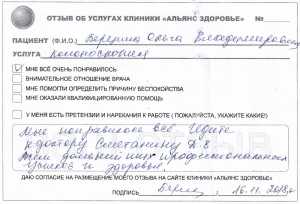 ОТЗЫВ ОБ УСЛУГАХ КЛИНИКИ «АЛЬЯНС ЗДОРОВЬЕ» №
ПАЦИЕНТ (Ф.И.О.) Верегина Ольга Владимировна
УСЛУГА колоноскопия
МНЕ ВСЁ ОЧЕНЬ ПОНРАВИЛОСЬ
ВНИМАТЕЛЬНОЕ ОТНОШЕНИЕ ВРАЧА
МНЕ ПОМОГЛИ ОПРЕДЕЛИТЬ ПРИЧИНУ БЕСПОКОЙСТВА
МНЕ ОКАЗАЛИ КВАЛИФИЦИРОВАННУЮ ПОМОЩЬ
У МЕНЯ ЕСТЬ ПРЕТЕНЗИИ И НАРЕКАНИЯ К РАБОТЕ ( ПОЖАЛУЙСТА, УКАЖИТЕ КАКИЕ)
Мне понравилось всё. Идите
к доктору Сметанину Д.В.
профессиональных
успехов и здоровья.
ДАЮ СОГЛАСИЕ НА РАЗМЕЩЕНИЕ МОЕГО ОТЗЫВА НА САЙТЕ КЛИНИКИ «АЛЬЯНС ЗДОРОВЬЕ»
ПОДПИСЬ 16.11.2018г.